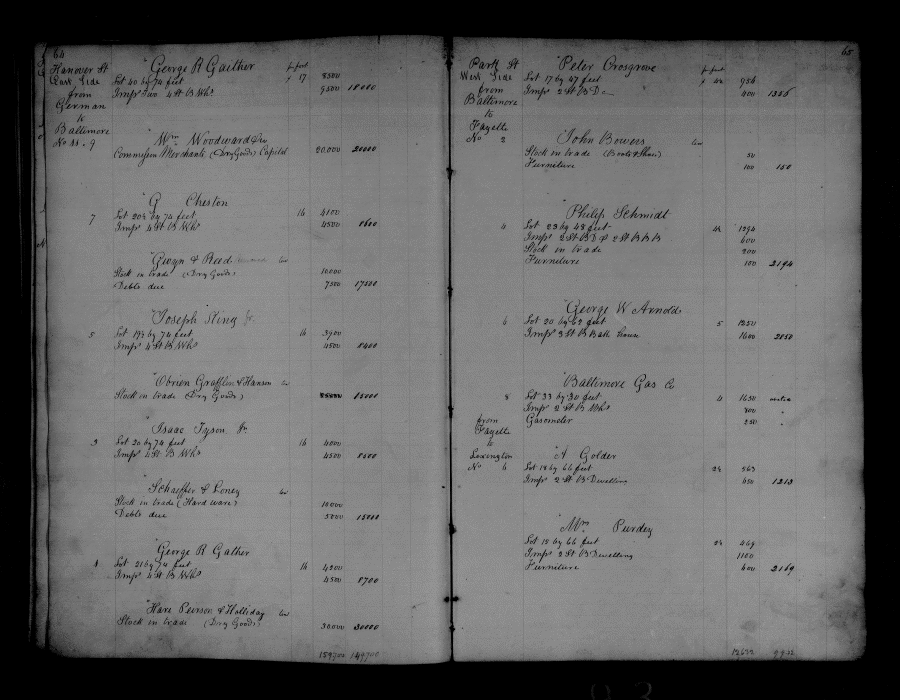 64
Hanover St
East Side
from
German
to
Baltimore
No 11 . 9
George R Gaither
p foot
Lot 40 by 74 feet 17 8500
Imps Two 4 St B Whs 9500 18000
Wm Woodward & Co
Commission Merchants (Dry Goods) Capital 20.000 20000
G Cheston
7 Lot 20½ by 74 feet 16 4100
Imps 4 St B Whs 4500 8600
Gwyn & Reed
Stock in trade (Dry Goods) 10000
Debts due 7500 17500
Joseph King Jr
5 Lot 19½ by 74 feet 16 3900
Imps 4 St B Whs 4500 8400
Obrien Grafflin & Hanson
Stock in trade (Dry Goods) 15000
Isaac Tyson Jr
3 Lot 20 by 74 feet 16 4000
Imps 4 St B Whs 4500 8500
Schaeffer & Loney
Stock in trade (Hard ware) 10000
Debts due 5000 15000
George R Gaither
1 Lot 21 by 74 feet 16 4200
Imps 4 St B Whs 4500 8700
Hare Peirson & Holliday
Stock in trade (Dry Goods) 30000 30000
149700
65
Park St
West Side
from
Baltimore
to
Fayette
No 2
Peter Crosgrove
p foot
Lot 17 by 47 feet 956
Imps 2 St B D 400 1356
John Bowers
Stock in trade (Boots & Shoes) 50
Furniture 100 150
Philip Schmidt
4 Lot 23 by 48 feet 1294
Imps 2 St B D & 2 St B B B 600
Stock in trade 200
Furniture 100 2194
George W Arnold
6 Lot 20 by 62 feet 5 1250
Imps 3 St B Bath house 1600 2850
Baltimore Gas Co
8 Lot 33 by 30 feet 4 1650
Imps 2 St B Whs 800
Gasometer 250
from
Fayette
to
Lexington
No 6
A Golder
Lot 18 by 66 feet 563
Imps 2 St B Dwelling 650 1213
Wm Purdey
Lot 15 by 66 feet 469
Imps 2 St B Dwelling 1100
Furniture 600 2169
12632 9932